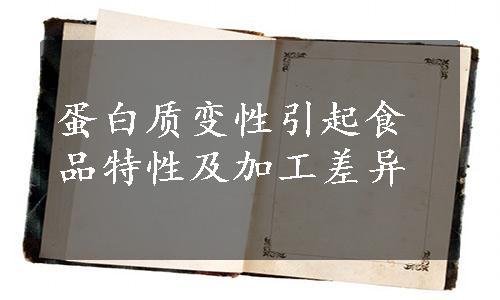 蛋白质变性引起食
品特性及加工差异